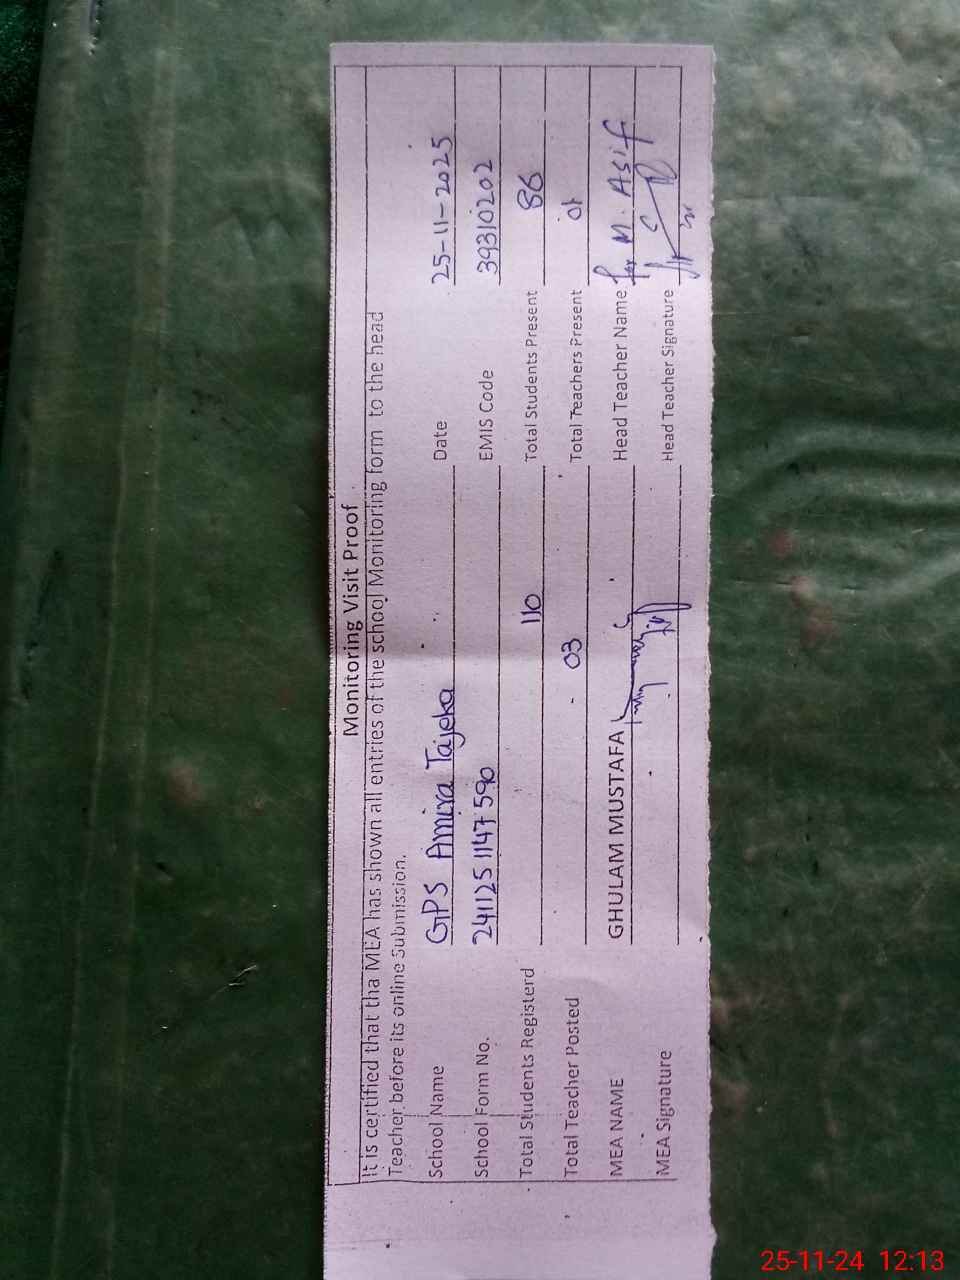 Monitoring Visit Proof
It is certified that tha MEA has shown all entries of the school Monitoring form to the head
Teacher before its online Submission.
School Name GPS Amira Tajeka Date 25-11-2025
School Form No. 241125 1147590 EMIS Code 39310202
Total Students Registerd 110 Total Students Present 86
Total Teacher Posted 03 Total Teachers Present 01
MEA NAME GHULAM MUSTAFA Head Teacher Name for M. Asif
MEA Signature Head Teacher Signature
25-11-24 12:13